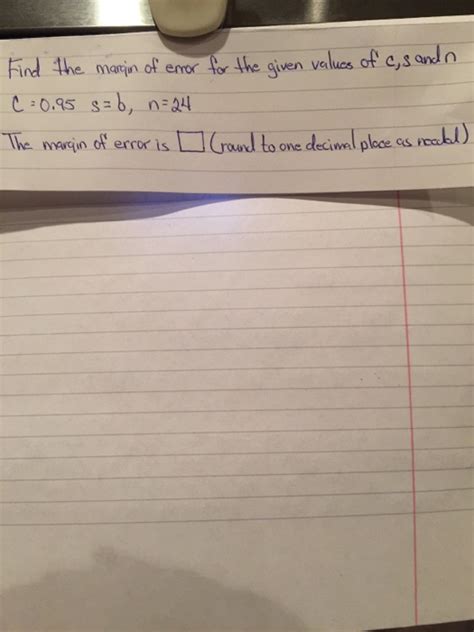 Find the margin of error for the given values of c, s and n
C = 0.95 s = b, n = 24
The margin of error is □ (round to one decimal place as needed)